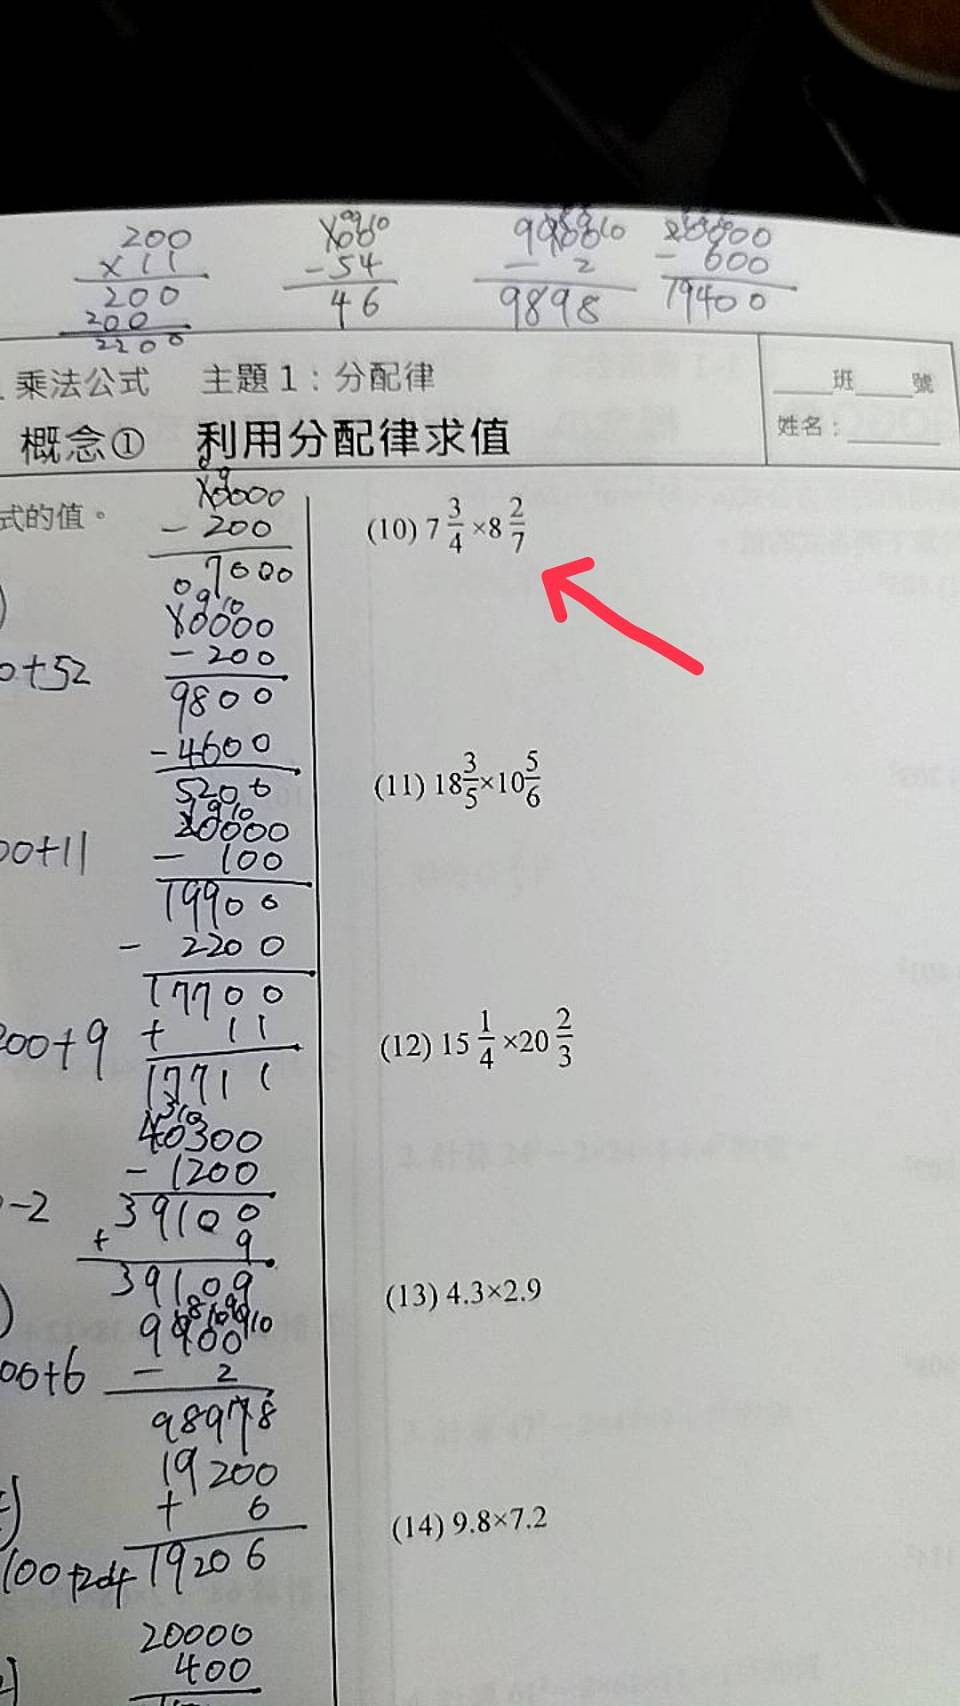 200
×11
200
200
2200
100
-54
46
- 2
9898
20000
- 600
19400
乘法公式 主題1：分配律
班 號
姓名：
概念① 利用分配律求值
式的值。
10000
- 200
9000
10000
- 200
9800
-4600
5200
20000
- 100
19900
- 2200
17700
+ 11
17711
40300
- 1200
39100
+ 9
39109
9900
- 2
19200
+ 6
19206
20000
400
+52
00+11
200+9
-2
00+6
(10) 7 3/4 ×8 2/7
(11) 18 3/5 ×10 5/6
(12) 15 1/4 ×20 2/3
(13) 4.3×2.9
(14) 9.8×7.2